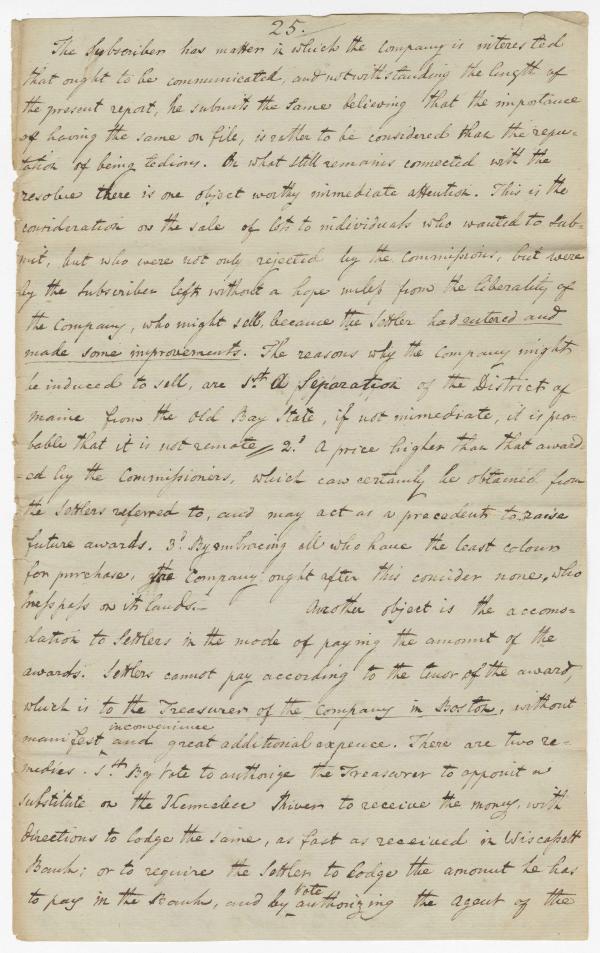 25.
The Subscriber has matters in which the company is interested
that ought to be communicated, and notwithstanding the length of
the present report, he submits the same believing that the importance
of having the same on file, is rather to be considered than the repu-
tation of being tedious. On what still remains connected with the
resolve there is one object worthy immediate attention. This is the
consideration on the sale of lots to individuals who wanted to sub-
mit, but who were not only rejected by the commissions, but were
by the subscriber left without a hope unless from the liberality of
the company, who might sell, because the settler had entered and
made some improvements. The reasons why the company might
be induced to sell, are 1st. A Separation of the District of
maine from the old Bay State, if not immediate, it is pro-
bable that it is not remote 2d. A price higher than that award-
-ed by the Commissioners, which can certainly be obtained from
the settlers referred to, and may act as a precedent to raise
future awards. 3d. By embracing all who have the least colour
for purchase, the Company ought after this consider none, who
tresspass on its lands.— Another object is the accomo-
dation to settlers in the mode of paying the amount of the
awards. Settlers cannot pay according to the tenor of the award,
which is to the Treasurer of the Company in Boston, without
manifest inconvenience and great additional expence. There are two re-
medies. 1st. By vote to authorize the Treasurer to appoint a
substitute on the Kennebec River to receive the money, with
directions to lodge the same, as fast as received in Wiscassett
Bank; or to require the Settler to lodge the amount he has
to pay in the Bank, and by vote authorizing the agent of the